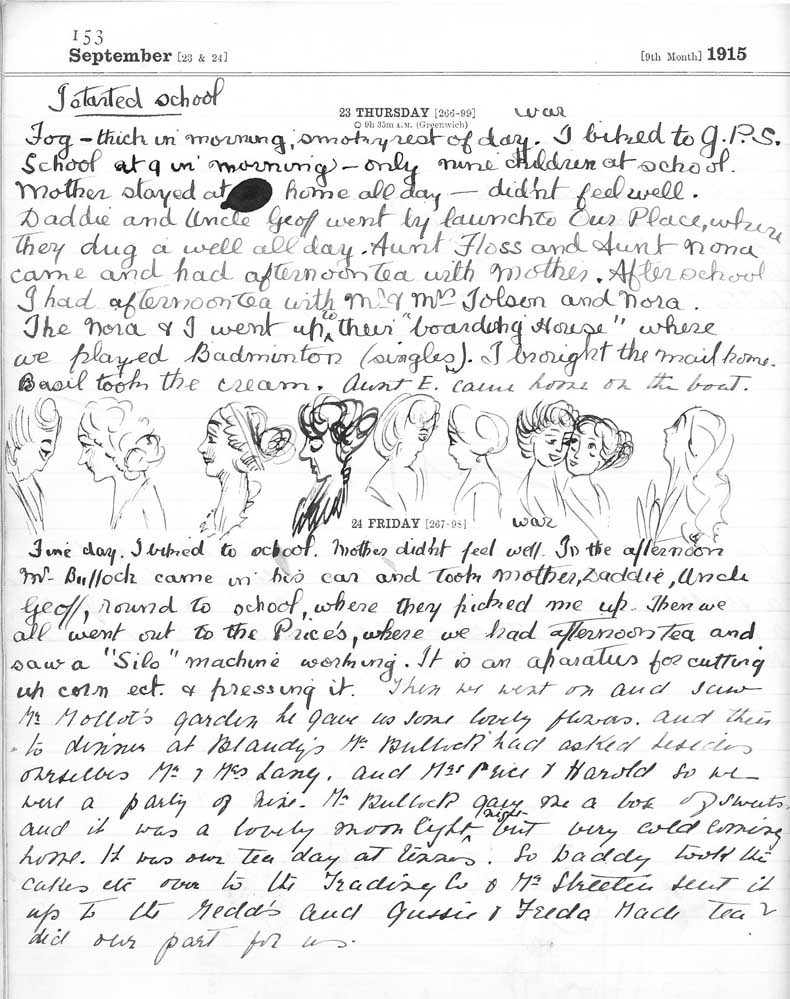 153
September [23 & 24] [9th Month] 1915
I started school
23 THURSDAY [266-99] war
9h 35m A.M. (Greenwich)
Fog - thick in morning, smoky rest of day. I biked to G.P.S.
School at 9 in morning - only nine children at school.
Mother stayed at home all day - did'nt feel well.
Daddie and Uncle Geoff went by launch to Our Place, where
they dug a well all day. Aunt Floss and Aunt Nona
came and had afternoon tea with Mother. After school
I had afternoon tea with Mr & Mrs Tolson and Nora.
The Nora & I went up to their "boarding House" where
we played Badminton (singles). I brought the mail home.
Basil took the cream. Aunt E. came home on the boat.
24 FRIDAY [267-98] war
Fine day. I biked to school. Mother did'nt feel well. In the afternoon
Mr Bullock came in his car and took Mother, Daddie, Uncle
Geoff, round to school, where they picked me up. Then we
all went out to the Price's, where we had afternoon tea and
saw a "Silo" machine working. It is an aparatus for cutting
up corn ect. & pressing it. Then we went on and saw
Mr Mollot's garden he gave us some lovely flowers. and then
to dinner at Blandy's Mr Bullock had asked besides
ourselves Mr & Mrs Lang, and Mrs Price & Harold so we
were a party of nine. Mr Bullock gave me a box of sweets.
and it was a lovely moonlight night but very cold coming
home. It was our tea day at tennis. So Daddy took the
cakes etc over to the Trading Co & Mr Streeten sent it
up to the and Gussie & Freda made tea &
did our part for us.